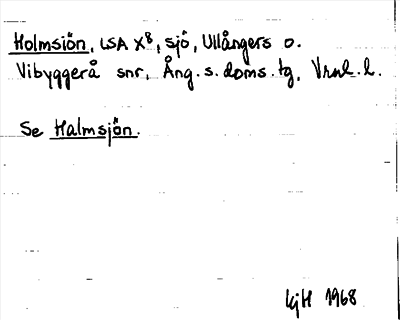 Holmsjön, LSA X⁸, sjö, Ullångers o.
Vibyggerå snr, Ång. s. doms. tg, Vrnl. l.
Se Halmsjön.
KjH 1968